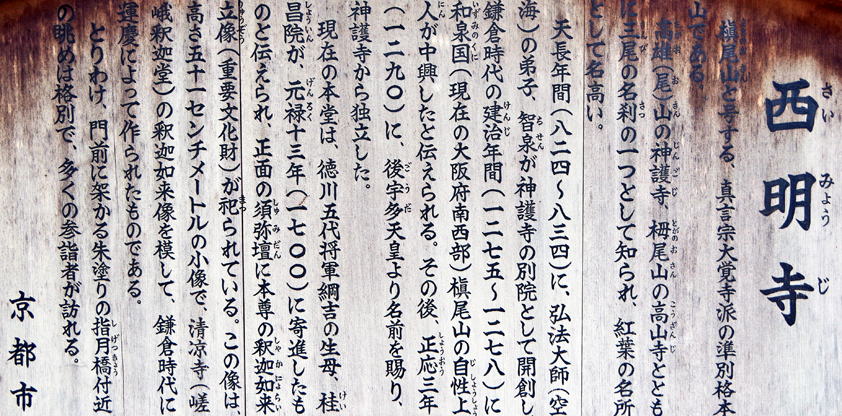 西明寺
さいみょうじ
槇尾山と号する、真言宗大覚寺派の準別格本
山である。
高雄(尾)山の神護寺、栂尾山の高山寺ととも
に三尾の名刹の一つとして知られ、紅葉の名所
として名高い。
天長年間(八二四〜八三四)に、弘法大師(空
海)の弟子、智泉が神護寺の別院として開創し
鎌倉時代の建治年間(一二七五〜一二七八)に
和泉国(現在の大阪府南西部)槇尾山の自性上
人が中興したと伝えられる。その後、正応三年
(一二九〇)に、後宇多天皇より名前を賜り、
神護寺から独立した。
現在の本堂は、徳川五代将軍綱吉の生母、桂
昌院が、元禄十三年(一七〇〇)に寄進したも
のと伝えられ、正面の須弥壇に本尊の釈迦如来
立像(重要文化財)が祀られている。この像は、
高さ五十一センチメートルの小像で、清凉寺(嵯
峨釈迦堂)の釈迦如来像を模して、鎌倉時代に
運慶によって作られたものである。
とりわけ、門前に架かる朱塗りの指月橋付近
の眺めは格別で、多くの参詣者が訪れる。
京都市